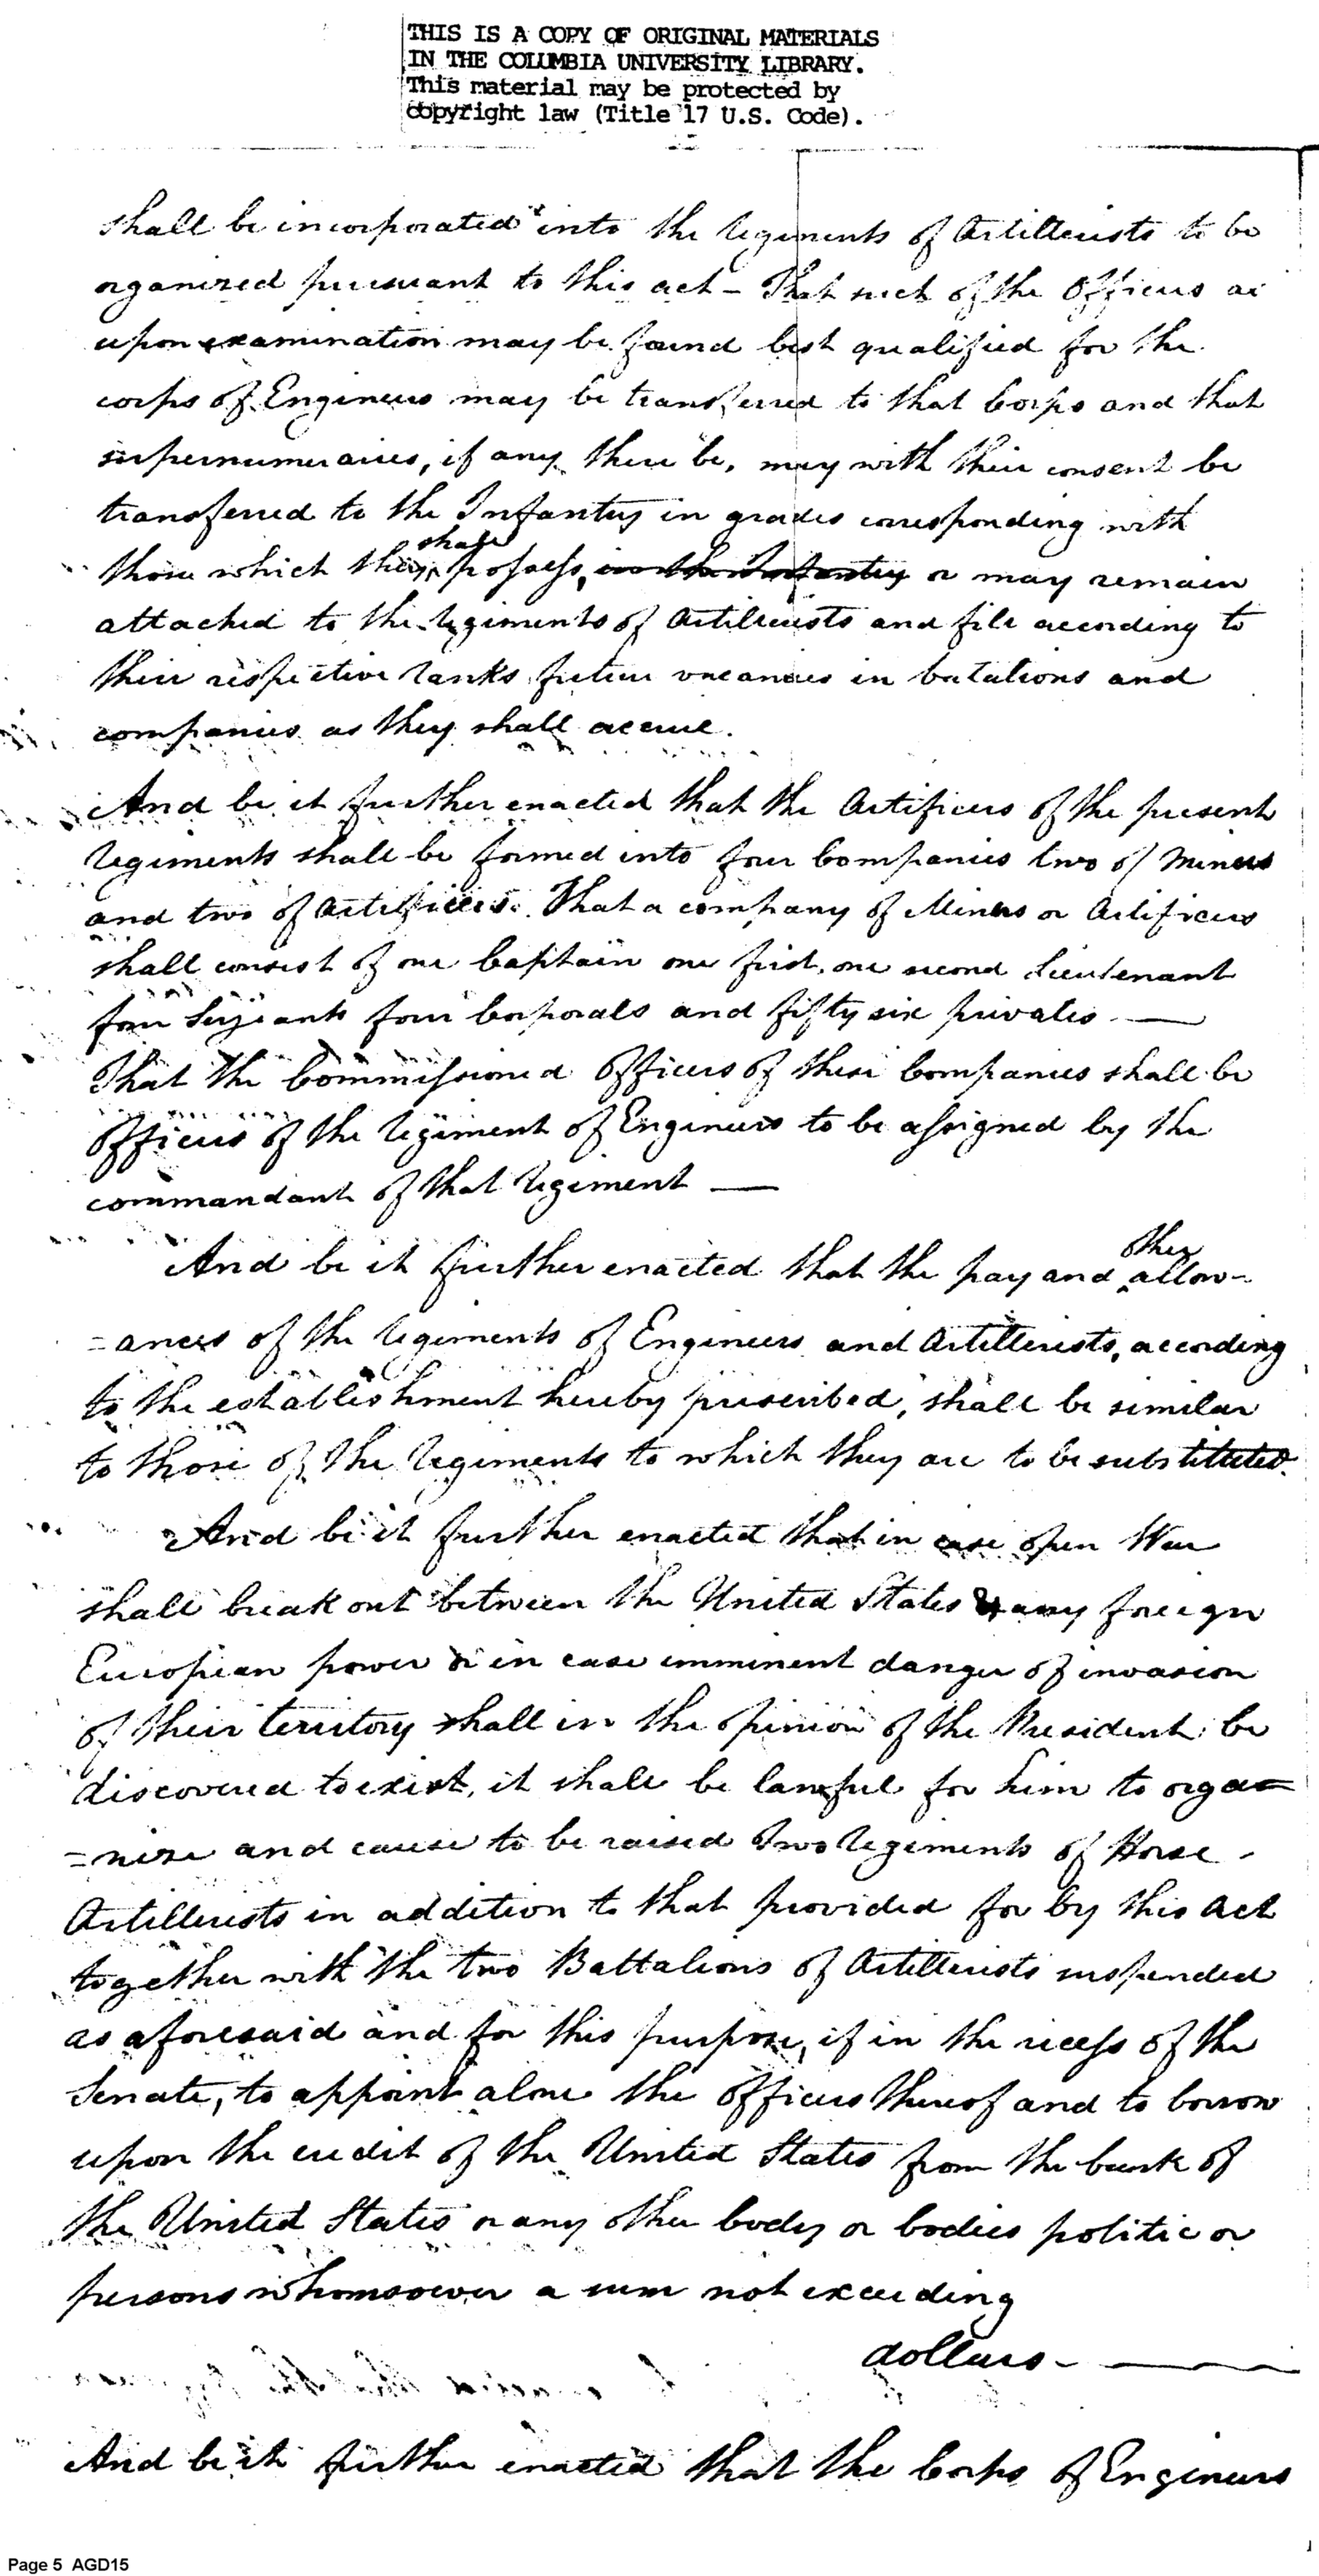 THIS IS A COPY OF ORIGINAL MATERIALS
IN THE COLUMBIA UNIVERSITY LIBRARY.
This material may be protected by
copyright law (Title 17 U.S. Code).
shall be incorporated into the regiments of Artillerists to be
organized pursuant to this act – That such of the Officers as
upon examination may be found best qualified for the
corps of Engineers may be transferred to that Corps and that
supernumeraries, if any there be, may with their consent be
transferred to the Infantry in grades corresponding with
shall
those which they possess, in the Infantry or may remain
attached to the regiments of Artillerists and fill according to
their respective ranks future vacancies in batalions and
companies as they shall accrue.
And be it further enacted that the Artificers of the present
regiments shall be formed into four Companies two of Miners
and two of Artificers. That a company of Miners or Artificers
shall consist of one Captain one first, one second Lieutenant
four Serjeants four Corporals and fifty six privates —
That the Commissioned Officers of these Companies shall be
Officers of the regiment of Engineers to be assigned by the
commandant of that regiment —
other
And be it further enacted that the pay and allow-
=ances of the regiments of Engineers and Artillerists, according
to the establishment hereby prescribed, shall be similar
to those of the regiments to which they are to be substituted.
And be it further enacted that in case open War
shall break out between the United States & any foreign
European power or in case imminent danger of invasion
of their territory shall in the opinion of the President be
discovered to exist, it shall be lawful for him to orga=
=nize and cause to be raised two regiments of Horse -
Artillerists in addition to that provided for by this Act
together with the two Battalions of Artillerists suspended
as aforesaid and for this purpose, if in the recess of the
Senate, to appoint alone the Officers thereof and to borrow
upon the credit of the United States from the bank of
the United States or any other body or bodies politic or
persons whomsoever a sum not exceeding
dollars - —
And be it further enacted that the Corps of Engineers
Page 5 AGD15